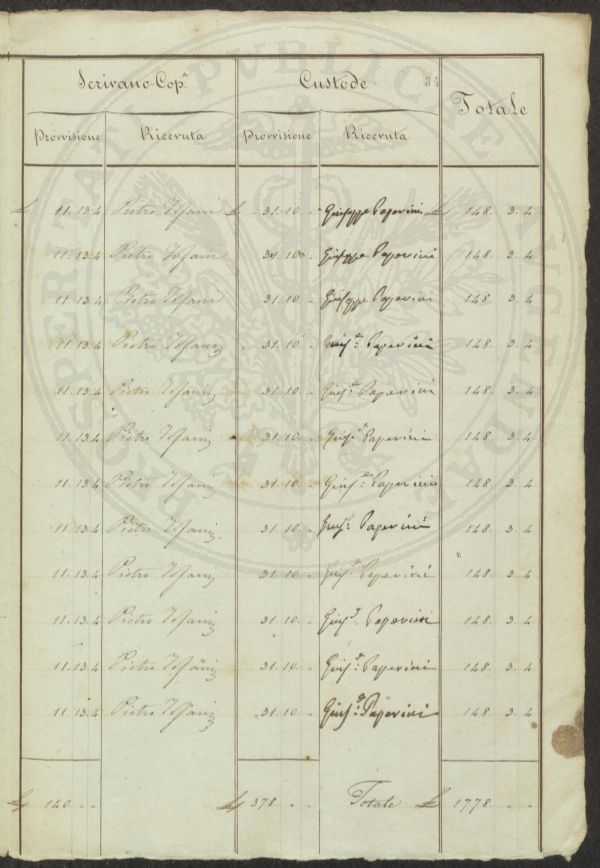 Scrivano Cop.ª Custode 34 Totale
Provvisione Ricevuta Provvisione Ricevuta
£ 11. 13. 4 Pietro £ 31. 10. - Giuseppe Paperini £ 148. 3. 4
11. 13. 4 Pietro 31. 10. - Giuseppe Paperini 148. 3. 4
11. 13. 4 Pietro 31. 10. - Giuseppe Paperini 148. 3. 4
11. 13. 4 Pietro 31. 10. - Gius.e Paperini 148. 3. 4
11. 13. 4 Pietro 31. 10. - Gius.e Paperini 148. 3. 4
11. 13. 4 Pietro 31. 10. - Gius.e Paperini 148. 3. 4
11. 13. 4 Pietro 31. 10. - Gius.e Paperini 148. 3. 4
11. 13. 4 Pietro 31. 10. - Gius.e Paperini 148. 3. 4
11. 13. 4 Pietro 31. 10. - Gius.e Paperini 148. 3. 4
11. 13. 4 Pietro 31. 10. - Gius.e Paperini 148. 3. 4
11. 13. 4 Pietro 31. 10. - Gius.e Paperini 148. 3. 4
11. 13. 4 Pietro 31. 10. - Gius.e Paperini 148. 3. 4
£ 140. - - £ 378. - - Totale £ 1778. - -